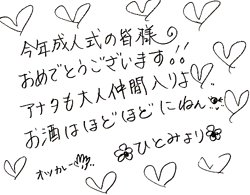 今年成人式の皆様
おめでとうございます!!
アナタも大人仲間入りよ♡
お酒はほどほどにねん
ひとみより
オツカレー